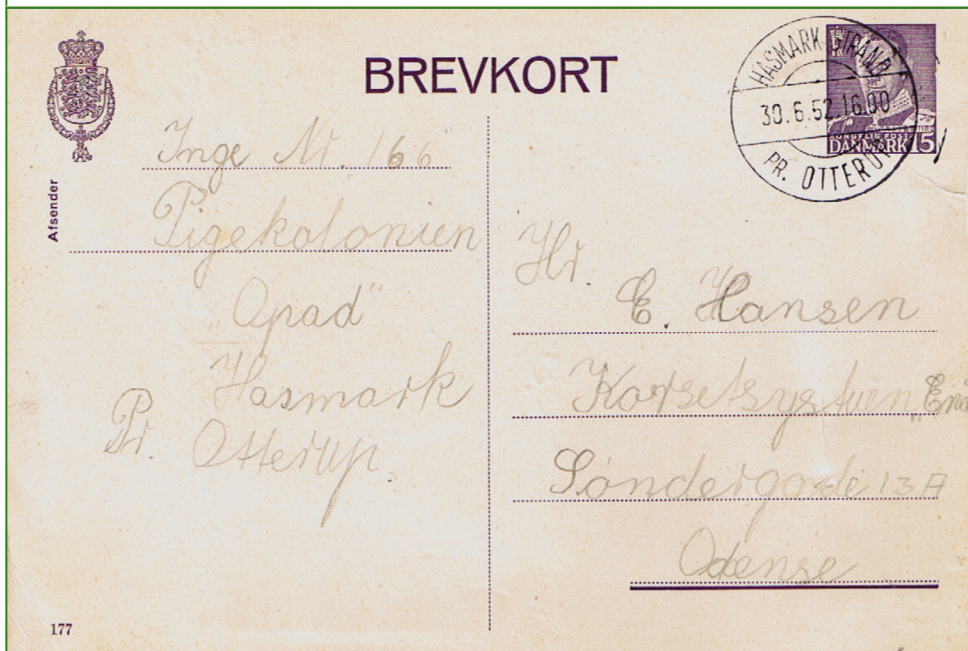 BREVKORT
HASMARK STRAND
30.6.52.16.00
PR. OTTERUP
KONGELIG POST
DANMARK 15
Afsender
Inge Nr. 166
Pigekolonien
„Opad"
Hasmark
Pr. Otterup.
Hr.
E. Hansen
Korsetsystuen
Søndergade 13A
Odense
177